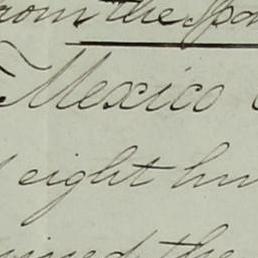 from the Spa
Mexico
eight hu
the